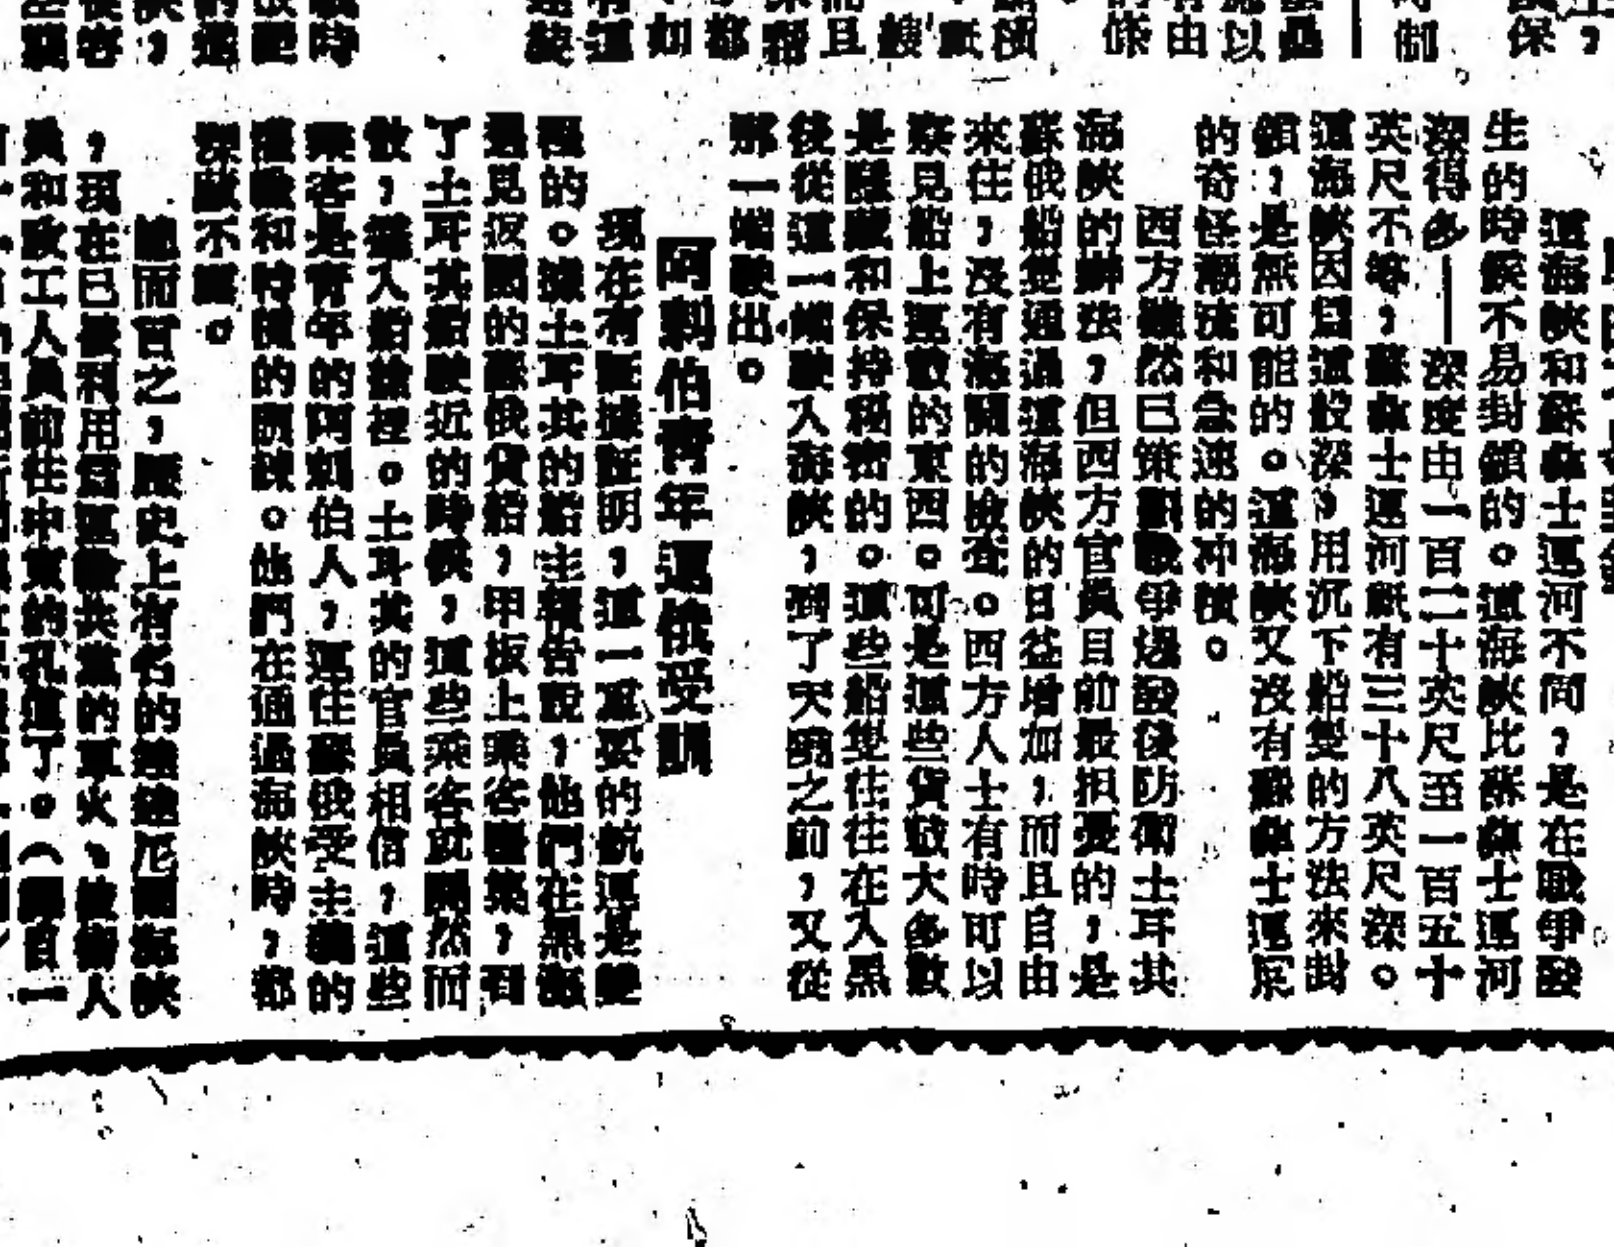 這海峽和蘇彝士運河不同，是在戰爭發
生的時候不易封鎖的。這海峽比蘇彝士運河
深得多——深度由一百二十英尺至一百五十
英尺不等，蘇彝士運河祇有三十八英尺深。
這海峽因爲這般深，用沉下船隻的方法來封
鎖，是無可能的。這海峽又沒有蘇彝士運
的奇怪潮流和急速的冲積。
西方雖然已策劃戰爭爆發後防衛土耳其
海峽的辦法，但西方官員目前最担憂的，是
蘇俄船隻通過這海峽的日益增加，而且自由
來往，沒有海關的檢查。西方人士有時可以
察見船上運載的東西。可是這些貨載大多數
是隱藏和保持秘密的。這些船隻往往在入黑
後從這一端駛入海峽，到了天曉之前，又從
那一端駛出。
阿剌伯靑年運俄受訓
現在有証據証明，這一重要的航運是雙
程的。據土耳其的船主報告說，他們在黑海
遇見返國的蘇俄貨船，甲板上乘客擠集，看
了土耳其船駛近的時候，這些乘客就閧然而
散，躱入船艙裡。土耳其的官員相信，這些
乘客是靑年的阿剌伯人，運往蘇俄受主義的
和特種的訓練。他們在通過海峽時，都
深藏不露。
總而言之，歷史上有名的達達尼爾海峽
，現在已被利用爲運輸共黨的軍火、技術人
員和政工人員前往中東的孔道了。（譯自一